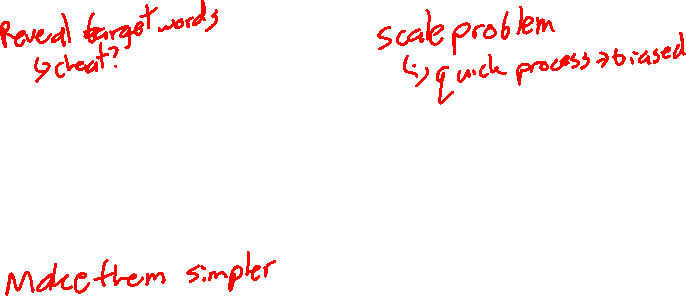 Reveal target words
↳ cheat?
scale problem
↳ quick process → biased
Make them simpler